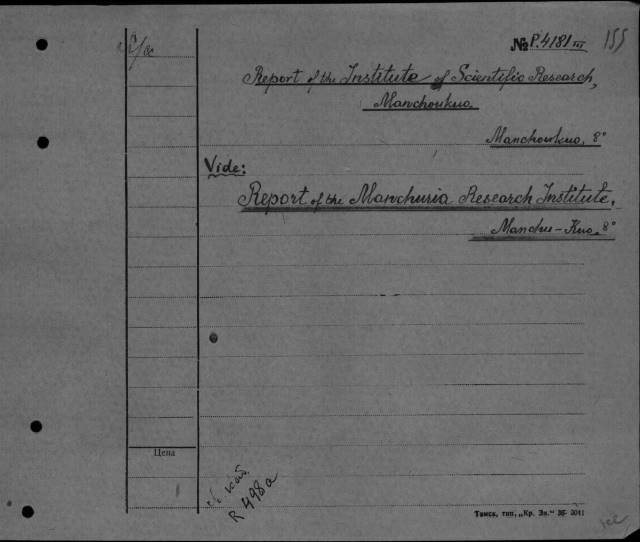 № P.4181 III 155
Report of the Institute of Scientific Research,
Manchoukuo
Manchoukuo, 8°
Vide:
Report of the Manchuria Research Institute,
Manchu-Kuo. 8°
Цена
R 498a
Томск, тип. „Кр. Зн." 35- 3041